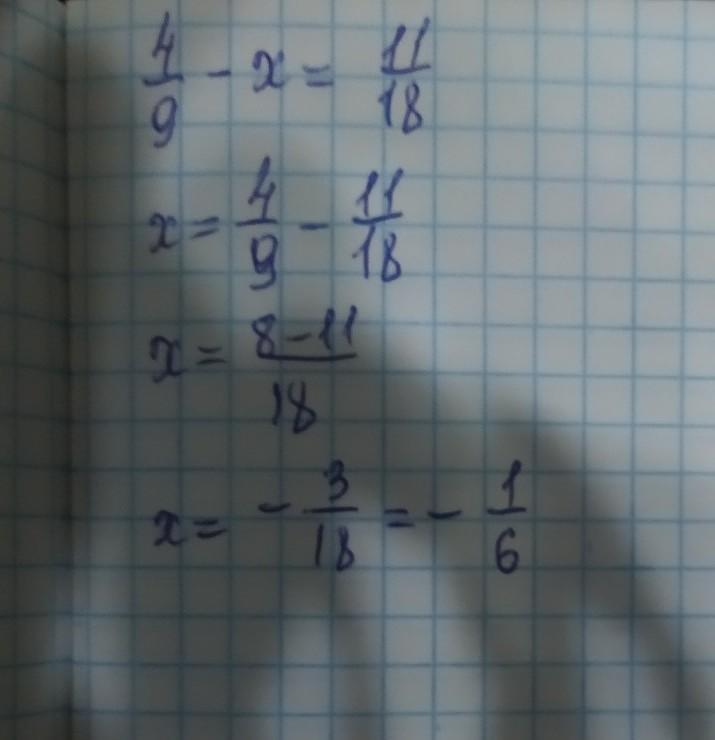 4/9 - x = 11/18
x = 4/9 - 11/18
x = 8-11/18
x = - 3/18 = - 1/6